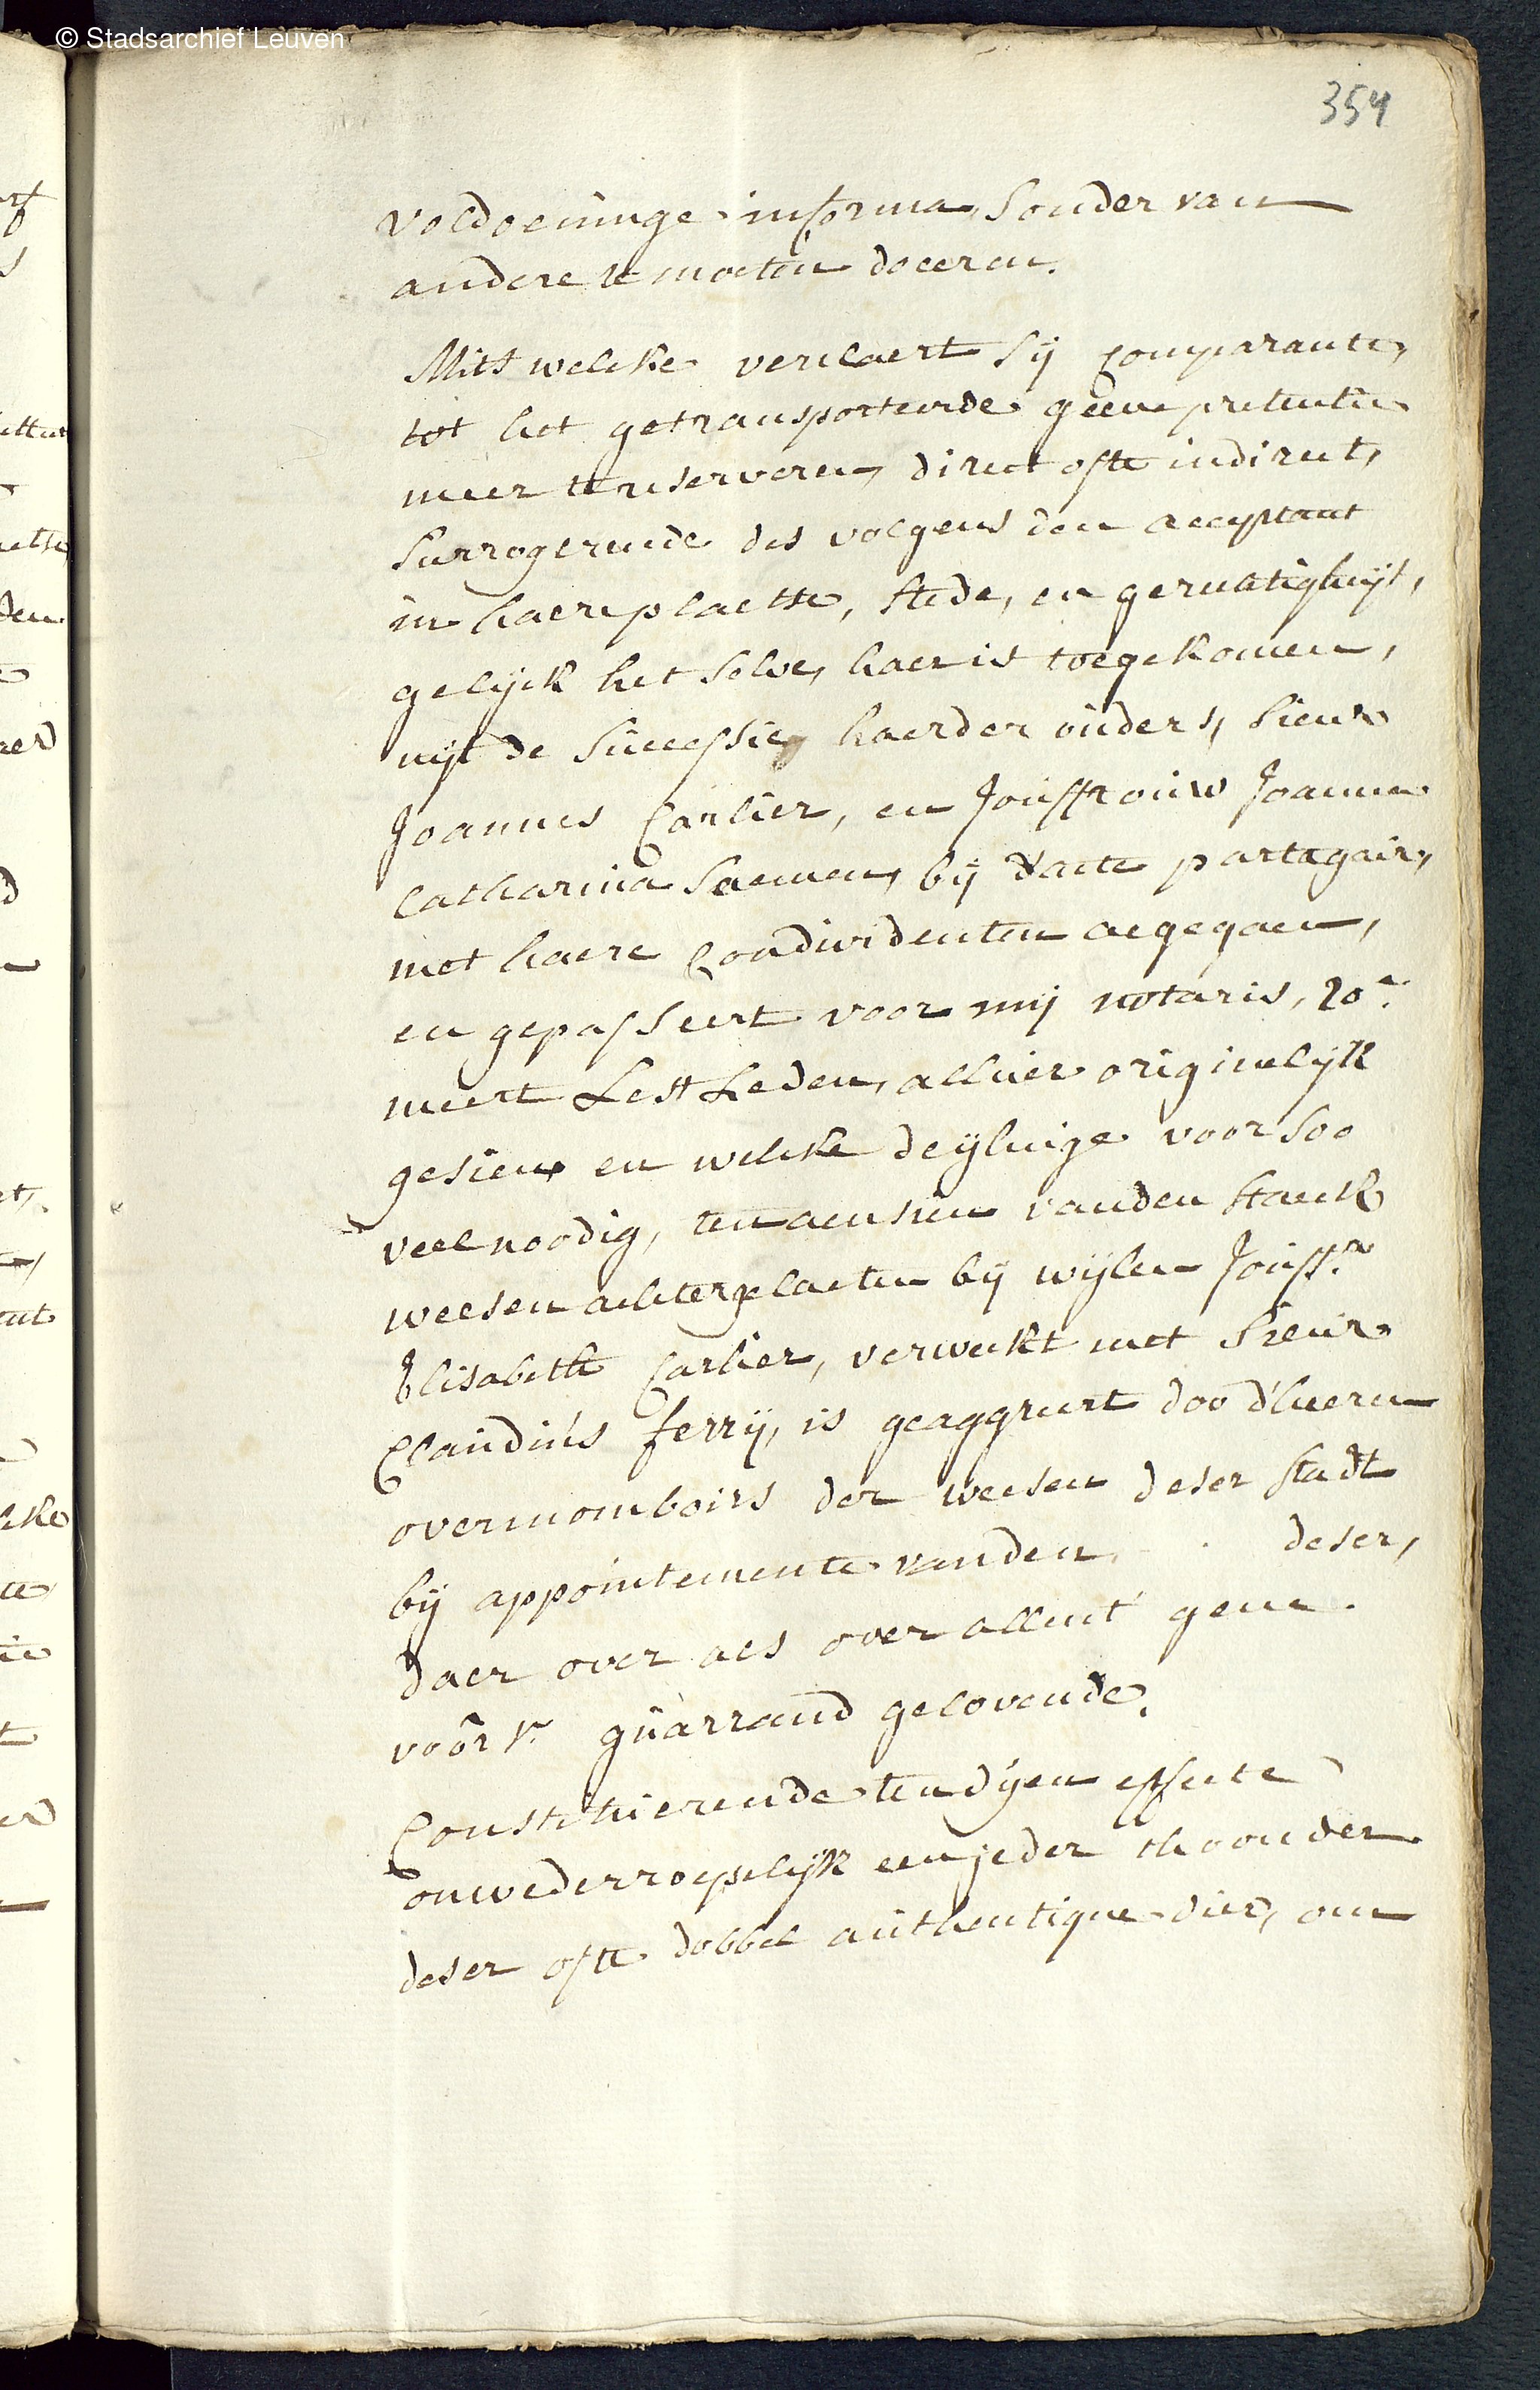 © Stadsarchief Leuven
354
voldoeninge informa, sonder van
andere te moeten doceren.
Mits welcke verclaert sij comparante,
tot het getransporteerde geene pretentie
meer te reserveren, direct ofte indirect,
surrogerende des volgens den acceptant
in haere plaetse, stede, en gerechtigheijt,
gelijck het selve, haer is toegekomen,
uijt de successie haerder ouders, sieur
Joannes Carlier, en Jouffrouw Joanna
Catharina Saenen, bij d'acte partagair,
met haere Condividenten aegegaen,
en gepasseert voor mij notaris, 20.e
meert Lest Leden, alhier originelijk
gesien, en welcke deijlinge voor soo
veel noodig, ten aensien vanden staeck
weesen achtergelaeten bij wijlen Jouff.e
Elisabeth Carlier, verweckt met sieur
Claudius ferrij, is geaggreert doo d'heeren
overmomboirs der weesen deser stadt
bij appointemente vanden deser,
daer over aes over allent' gene
voôr v.r guarrand gelovende.
Constituerende ten dijen effecte
onwederroepelijk een jeder thoonder
deser ofte dobbel authentique dier, om